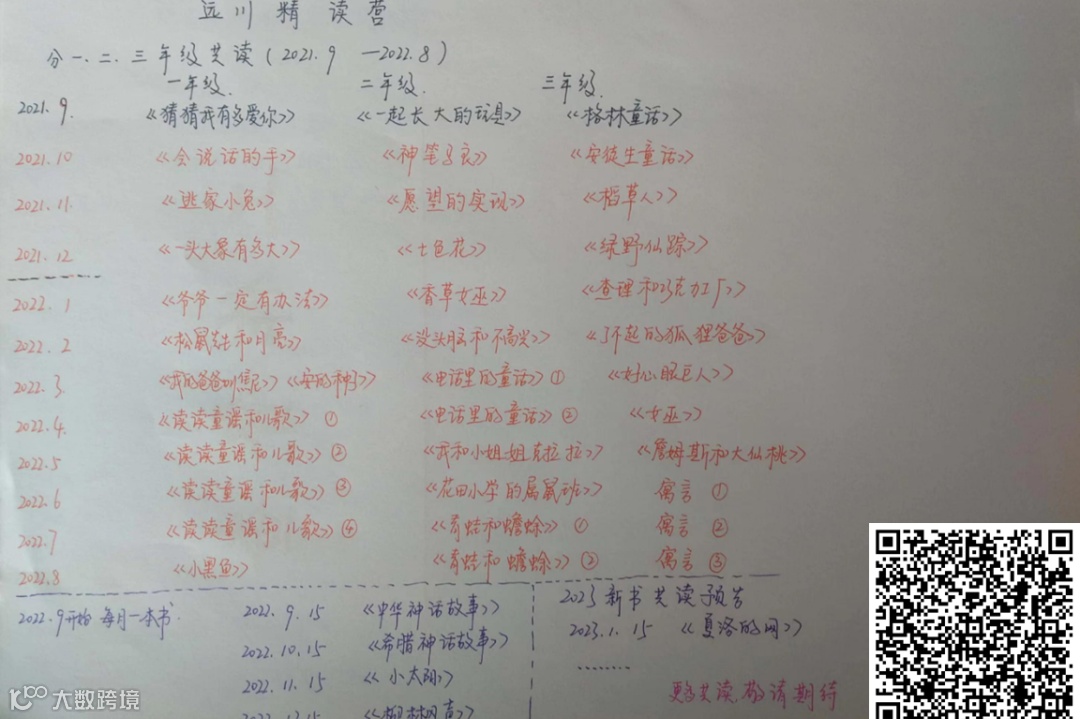 远川精读营
分一.二.三年级共读(2021.9 —2022.8)
一年级. 二年级. 三年级.
2021.9. 《猜猜我有多爱你》 《一起长大的玩具》 《格林童话》
2021.10 《会说话的手》 《神笔马良》 《安徒生童话》
2021.11. 《逃家小兔》 《愿望的实现》 《稻草人》
2021.12 《一头大象有多大》 《七色花》 《绿野仙踪》
2022.1 《爷爷一定有办法》 《香草女巫》 《查理和巧克力工厂》
2022.2 《松鼠先生和月亮》 《没头脑和不高兴》 《了不起的狐狸爸爸》
2022.3 《我的爸爸叫焦尼》《安的种子》 《电话里的童话》① 《好心眼巨人》
2022.4. 《读读童谣和儿歌》① 《电话里的童话》② 《女巫》
2022.5 《读读童谣和儿歌》② 《我和小姐姐克拉拉》 《詹姆斯和大仙桃》
2022.6 《读读童谣和儿歌》③ 《花田小学的属鼠班》 寓言①
2022.7 《读读童谣和儿歌》④ 《青蛙和蟾蜍》① 寓言②
2022.8 《小黑鱼》 《青蛙和蟾蜍》② 寓言③
2022.9开始 每月一本书 2022.9.15 《中华神话故事》
2022.10.15 《希腊神话故事》
2022.11.15 《小太阳》
2022.12.15 《柳林风声》
2023新书共读预告
2023.1.15 《夏洛的网》
………
更多共读,敬请期待
大数跨境